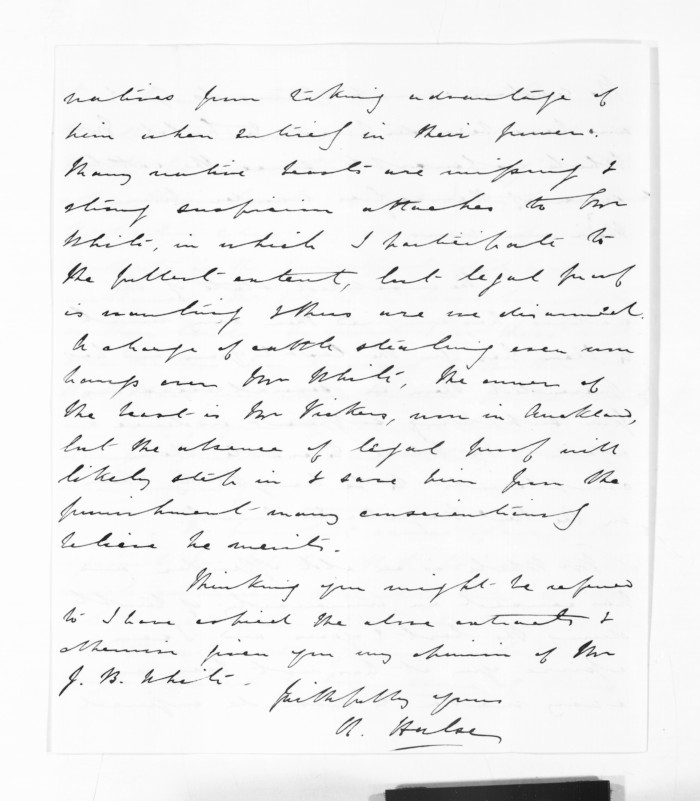 natives from taking advantage of
him when entirely in their power.
Many native beasts are missing &
strong suspicion attaches to Mr
White, in which I participate to
the fullest extent, but legal proof
is wanting & thus are we disarmed.
A charge of cattle stealing even now
hangs over Mr White, the owner of
the beast is Mr Vickers, now in Auckland,
but the absence of legal proof will
likely step in & save him from the
punishment many conscientiously
believe he merits.
Thinking you might be referred
to I have copied the above extracts &
otherwise given you my opinion of Mr
J. B. White.
Faithfully yours
A. Hulse